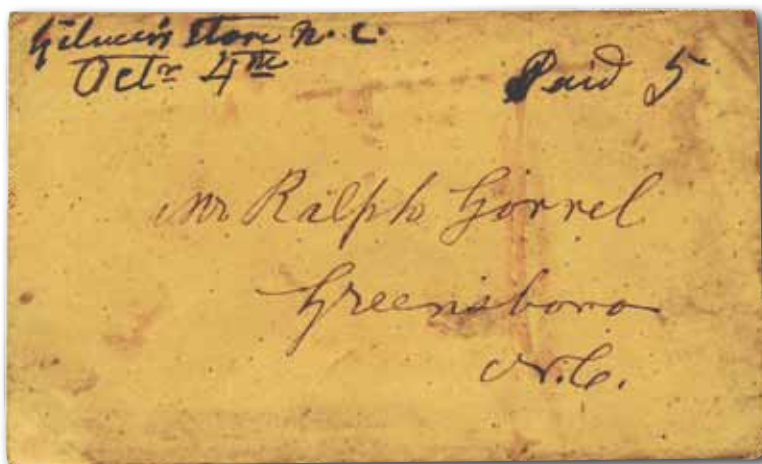 Gilmer's Store N. C.
Octr 4th
Paid 5
Mr Ralph Gorrel
Greensboro
N.C.